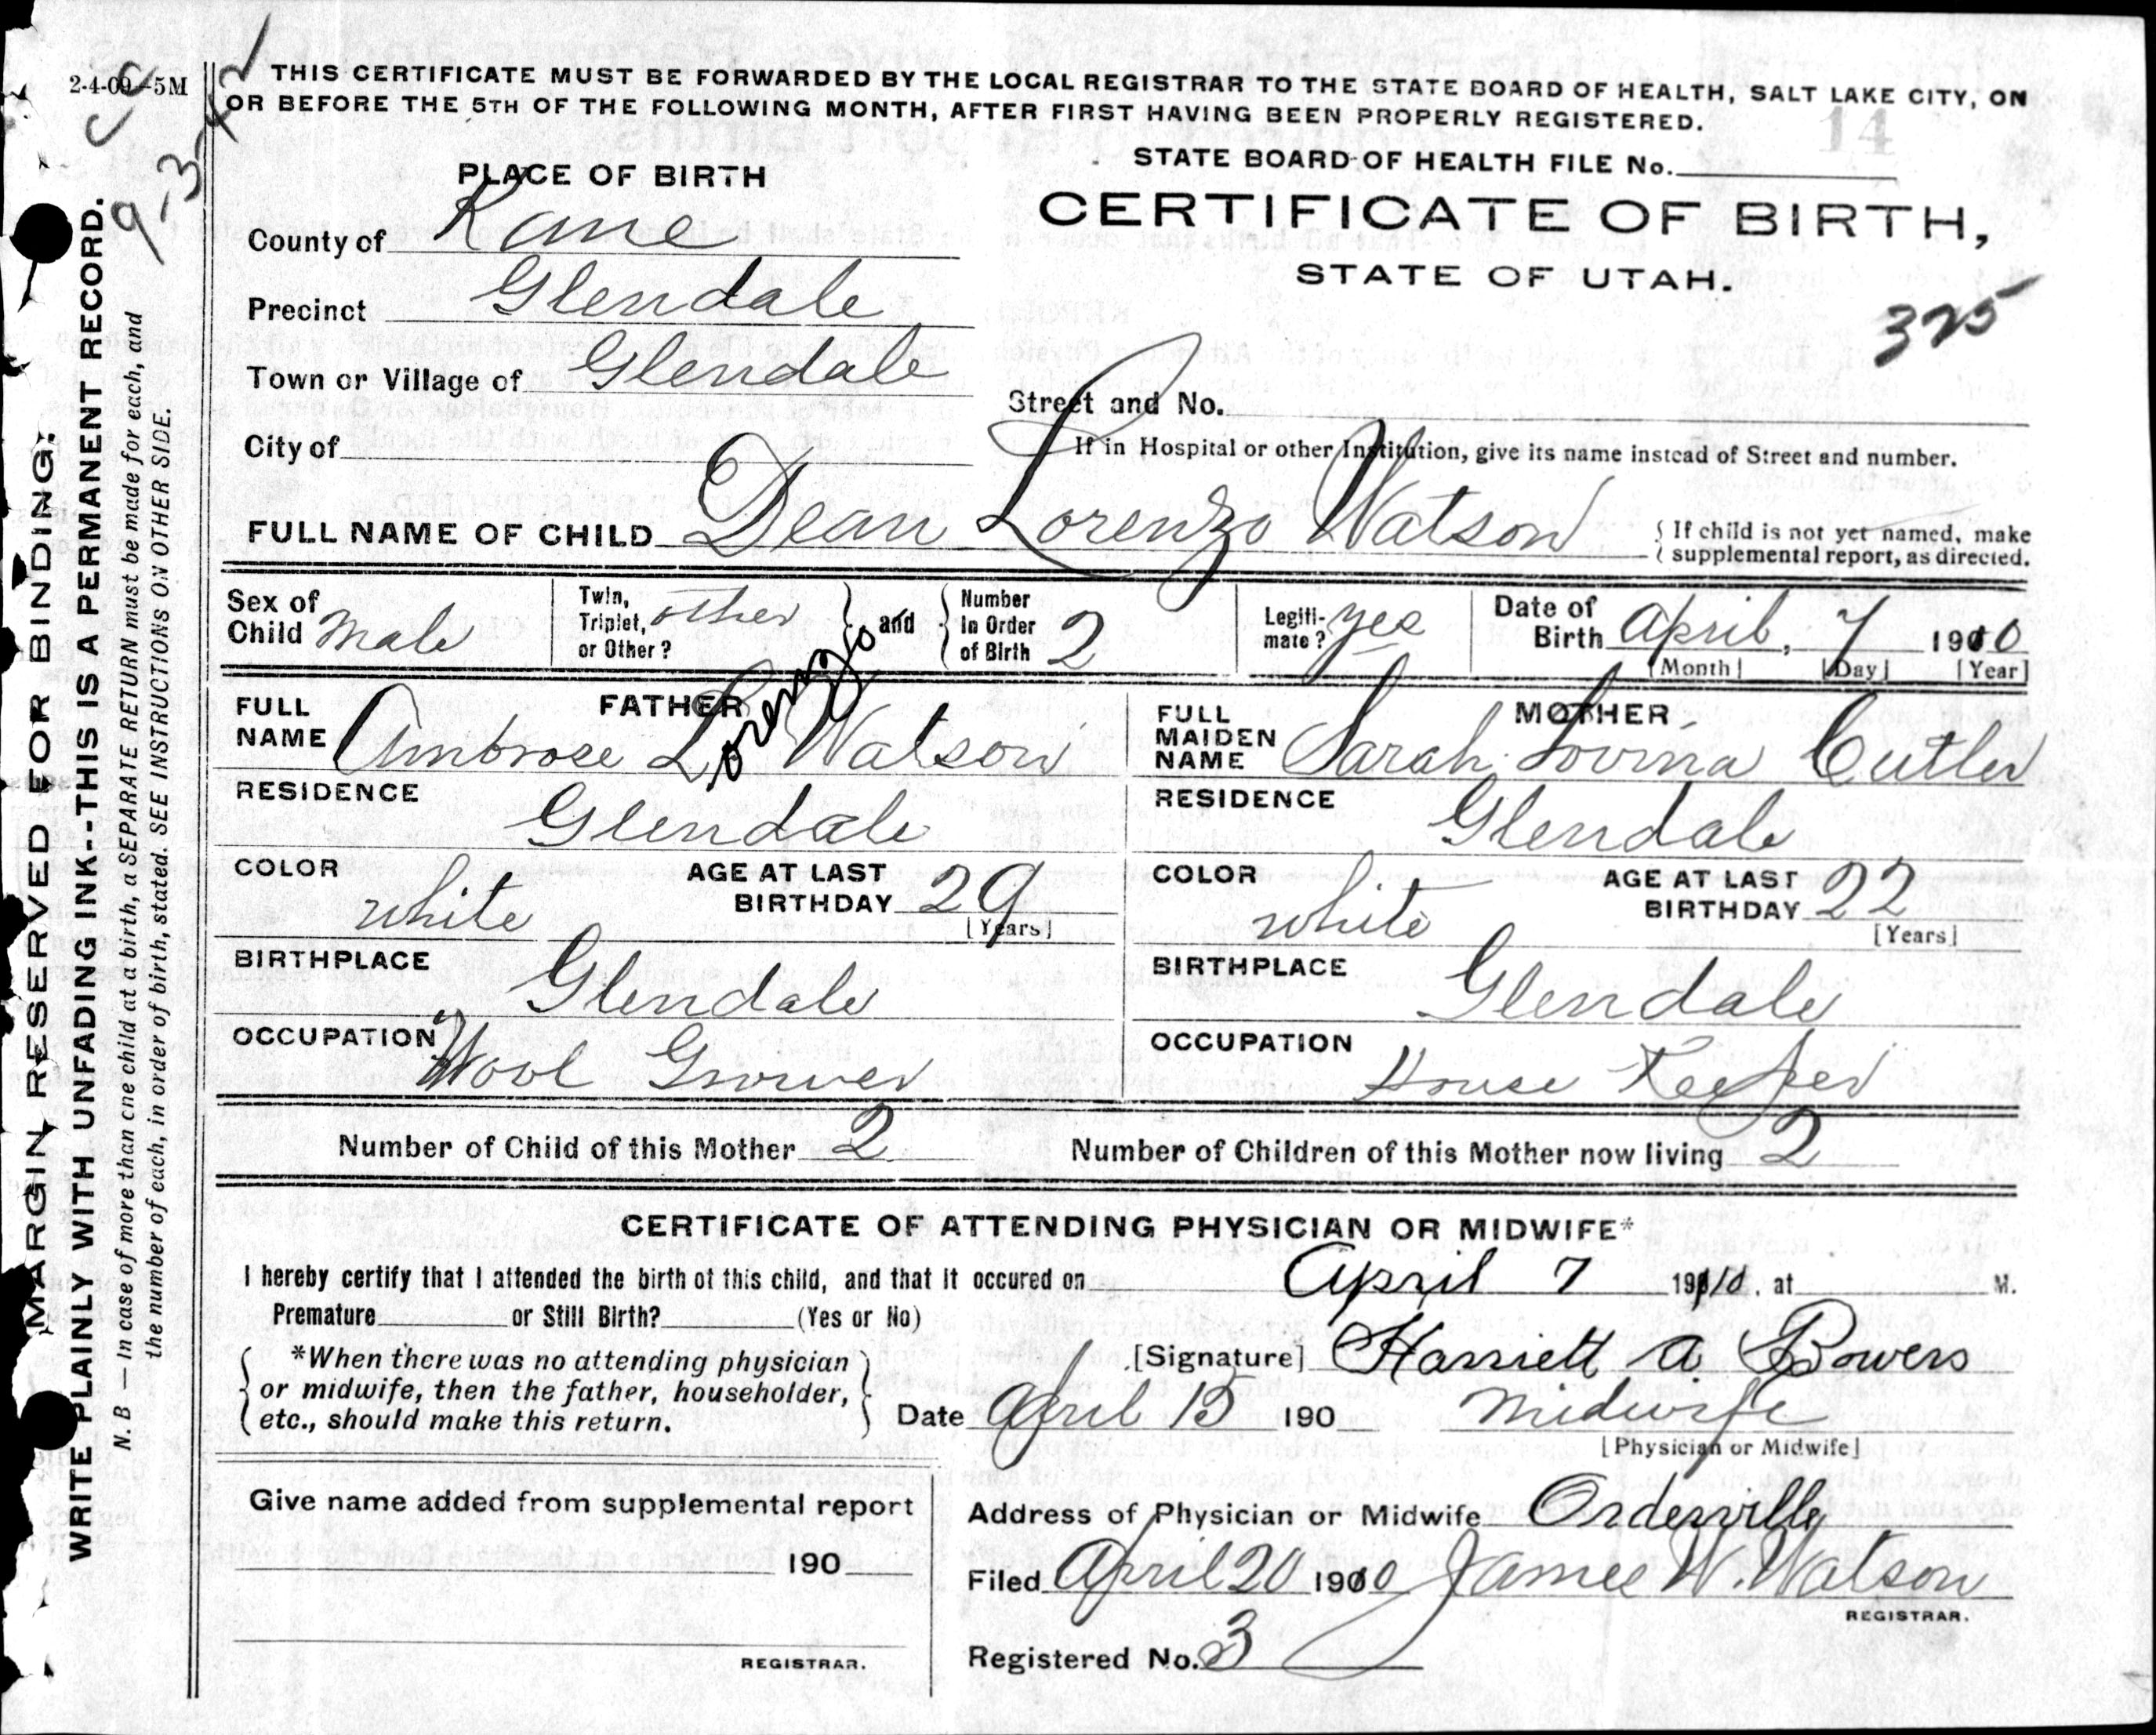 2-4-09--5M
THIS CERTIFICATE MUST BE FORWARDED BY THE LOCAL REGISTRAR TO THE STATE BOARD OF HEALTH, SALT LAKE CITY, ON
OR BEFORE THE 5TH OF THE FOLLOWING MONTH, AFTER FIRST HAVING BEEN PROPERLY REGISTERED.
14
STATE BOARD OF HEALTH FILE No.
PLACE OF BIRTH
CERTIFICATE OF BIRTH,
STATE OF UTAH.
325
County of Kane
Precinct Glendale
Town or Village of Glendale
Street and No.
City of
If in Hospital or other Institution, give its name instead of Street and number.
FULL NAME OF CHILD Dean Lorenzo Watson
If child is not yet named, make
supplemental report, as directed.
Sex of Child Male
Twin, Triplet, or Other? other
and Number In Order of Birth 2
Legiti-mate? yes
Date of Birth April, 7 1910
[Month] [Day] [Year]
FATHER
FULL NAME Ambrose L Lorenzo Watson
MOTHER
FULL MAIDEN NAME Sarah Lovina Cutler
RESIDENCE Glendale
RESIDENCE Glendale
COLOR white AGE AT LAST BIRTHDAY 29 [Years]
COLOR white AGE AT LAST BIRTHDAY 22 [Years]
BIRTHPLACE Glendale
BIRTHPLACE Glendale
OCCUPATION Wool Grower
OCCUPATION House Keeper
Number of Child of this Mother 2
Number of Children of this Mother now living 2
CERTIFICATE OF ATTENDING PHYSICIAN OR MIDWIFE*
I hereby certify that I attended the birth of this child, and that it occured on April 7 1910, at M.
Premature or Still Birth? (Yes or No)
*When there was no attending physician
or midwife, then the father, householder,
etc., should make this return.
[Signature] Harriett A Bowers
Date April 15 190
Midwife
[Physician or Midwife]
Give name added from supplemental report
190
REGISTRAR.
Address of Physician or Midwife Orderville
Filed April 20 1910 James W. Watson
REGISTRAR.
Registered No. 3
MARGIN RESERVED FOR BINDING.
WRITE PLAINLY WITH UNFADING INK--THIS IS A PERMANENT RECORD.
N. B — In case of more than one child at a birth, a SEPARATE RETURN must be made for each, and
the number of each, in order of birth, stated. SEE INSTRUCTIONS ON OTHER SIDE.